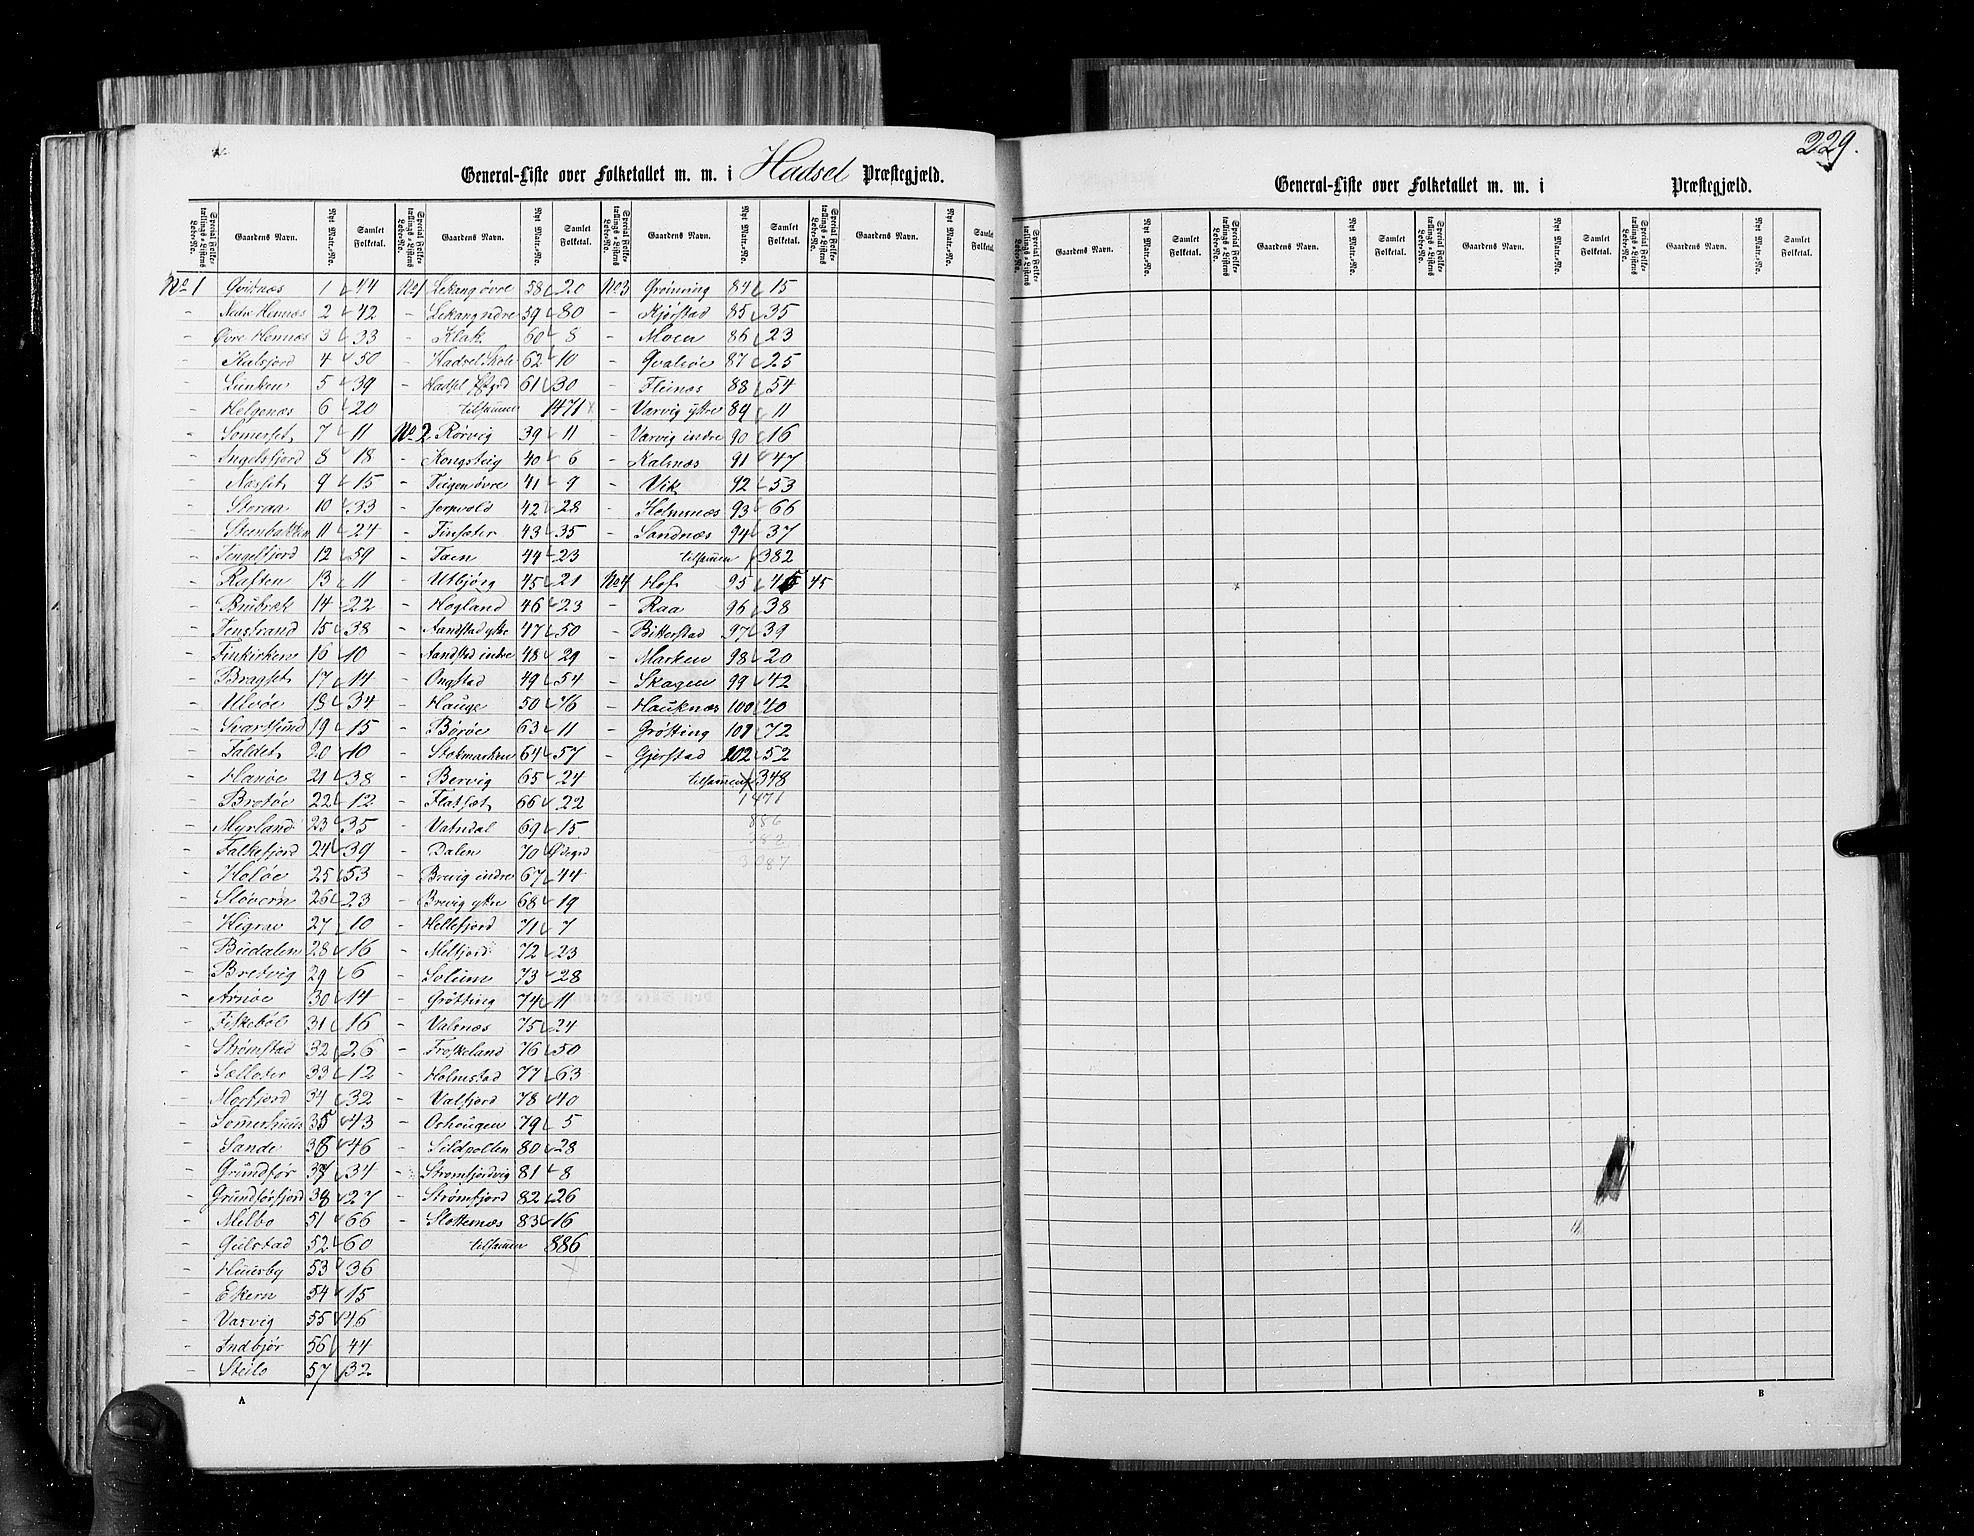 229.
General-Liste over Folketallet m. m. i Hadsel Præstegjæld.
Special Folketællings-Listens Løbe-No. Gaardens Navn. Nyt Matr.-No. Samlet Folketal. Special Folketællings-Listens Løbe-No. Gaardens Navn. Nyt Matr.-No. Samlet Folketal. Special Folketællings-Listens Løbe-No. Gaardens Navn. Nyt Matr.-No. Samlet Folketal. Special Folketællings-Listens Løbe-No. Gaardens Navn. Nyt Matr.-No. Samlet Folketal.
No 1 Qvitnæs 1 44
- Nedre Hennæs 2 42
- Øvre Hennæs 3 33
- Kalsfjord 4 50
- 5 39
- Helgenæs 6 20
- Somerset 7 11
- Ingelsfjord 8 18
- Næsset 9 15
- Storaa 10 33
- 11 24
- Tengelfjord 12 59
- Raften 13 11
- 14 22
- Tenstrand 15 38
- Finkirken 16 10
- Bragset 17 14
- Ulvøe 18 34
- Svartsund 19 15
- Faldet 20 10
- Hanøe 21 38
- Brotøe 22 12
- Myrland 23 35
- Falkefjord 24 39
- Holøe 25 53
- Sløvern 26 23
- Higrav 27 10
- Budalen 28 16
- Bretvig 29 6
- Arnøe 30 14
- Fiskebøl 31 16
- Strømstad 32 26
- Sælloter 33 12
- Morfjord 34 32
- Somerhuus 35 43
- Sande 36 46
- Grundfør 37 34
- Grundførfjord 38 27
- Melbo 51 66
- Gulstad 52 60
- Huusby 53 36
- Ekern 54 15
- Varvig 55 46
- Indbjør 56 44
- Steilo 57 32
No 1 Lekang øvre 58 20
- Lekang ndre 59 80
- Klak 60 8
- Hadsel Skole 62 10
- Hadsel 61 30
tilsammen 1471
No 2 Rørvig 39 11
- Kongsteig 40 6
- Teigen øvre 41 9
- Jorpvold 42 28
- Finsæter 43 35
- Taen 44 23
- Utbjørg 45 21
- Hogland 46 23
- Aandstad ytre 47 50
- Aandstad indre 48 29
- Ongstad 49 54
- Hauge 50 76
- Børøe 63 11
- Stokmarken 64 57
- Bervig 65 24
- Flatsæt 66 22
- Vatndal 69 15
- Dalen 70 Ødegrd
- Brevig indre 67 44
- Brevig ytre 68 19
- Hellefjord 71 7
- Melfjord 72 23
- Solum 73 28
- Grøtting 74 11
- Valsnæs 75 24
- Froskeland 76 50
- Holmstad 77 63
- Valfjord 78 40
- Oshaugen 79 5
- Sildpollen 80 28
- Strømfjordvig 81 8
- Strømfjord 82 26
- Slottenæs 83 16
tilsammen 886
No 3 Grønning 84 15
- Kjørstad 85 35
- Moen 86 23
- Qvalsøe 87 25
- Fleinæs 88 54
- Varvig ytre 89 11
- Varvig indre 90 16
- Kalsnæs 91 47
- Vik 92 53
- Holmnæs 93 66
- Sandnæs 94 37
tilsammen 382
No 4 Hof 95 45 45
- Raa 96 38
- Bitterstad 97 39
- Marken 98 20
- Skagen 99 42
- Hauknæs 100 40
- Grøtting 101 72
- Gjerstad 102 52
tilsammen 348
1471
886
382
3087
A
General-Liste over Folketallet m. m. i Præstegjæld.
Special Folketællings-Listens Løbe-No. Gaardens Navn. Nyt Matr.-No. Samlet Folketal. Special Folketællings-Listens Løbe-No. Gaardens Navn. Nyt Matr.-No. Samlet Folketal. Special Folketællings-Listens Løbe-No. Gaardens Navn. Nyt Matr.-No. Samlet Folketal. Special Folketællings-Listens Løbe-No. Gaardens Navn. Nyt Matr.-No. Samlet Folketal.
B